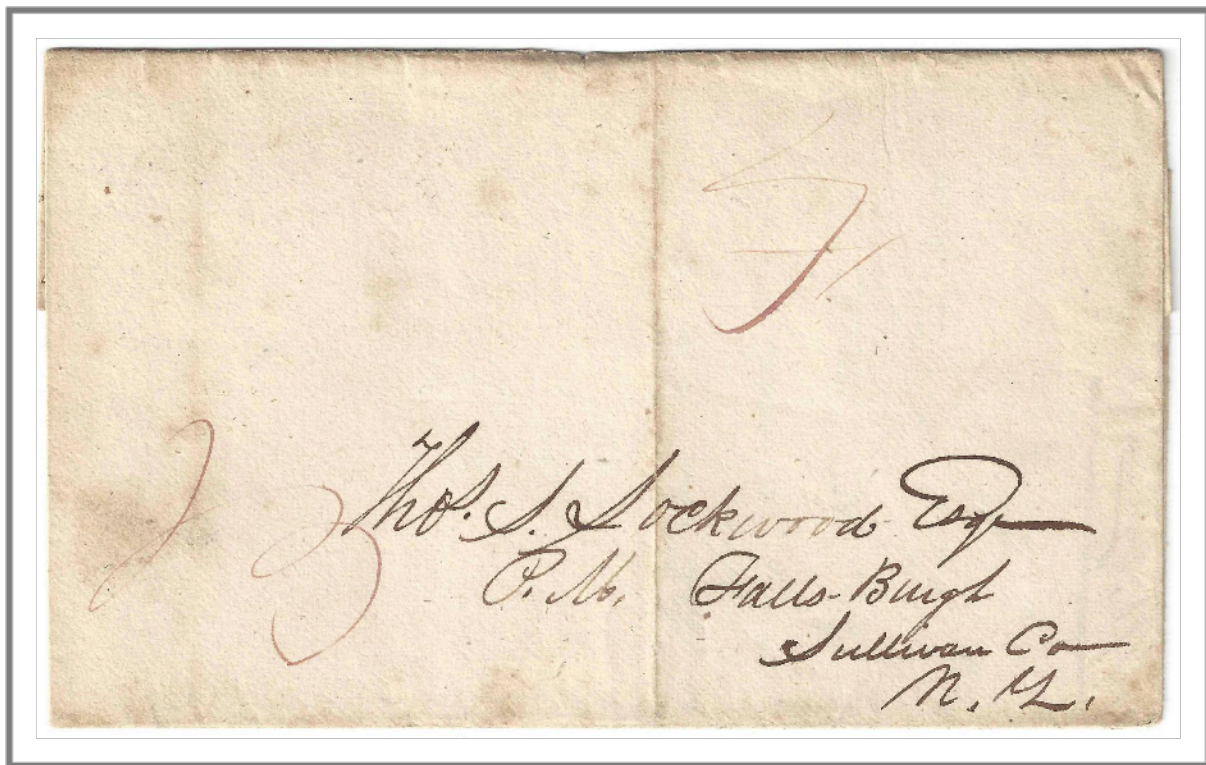 Thos. S. Lockwood Esqr
P. M. Falls-Burgh
Sullivan Co
N. Y.